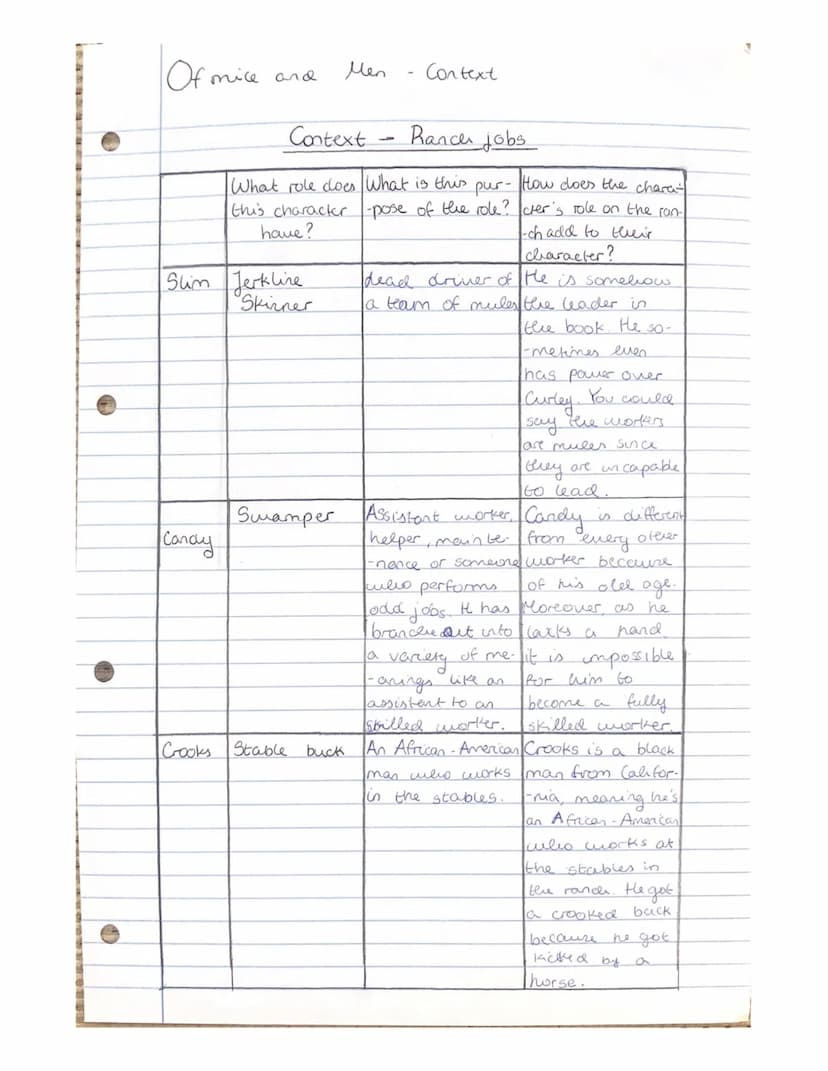 Of mice and Men - Context
Context - Ranch jobs
What role does
this character
have?
What is this pur-
-pose of the role?
How does the chara-
cter's role on the ran-
-ch add to their
character?
Slim
Jerkline
Skinner
dead driver of
a team of mules
He is somehow
the leader in
the book. He so-
-metimes even
has power over
Curley. You could
say the workers
are mules since
they are uncapable
to lead.
Candy
Swamper
Assistant worker,
helper, mainte-
-nance or someone
who performs
odd jobs. It has
branched out into
a variety of me-
-anings like an
assistent to an
skilled worker.
Candy is different
from every other
worker because
of his old age.
Moreover, as he
lacks a hand
it is impossible
for him to
become a fully
skilled worker.
Crooks
Stable buck
An African-American
man who works
in the stables.
Crooks is a black
man from Califor-
-nia, meaning he's
an African-American
who works at
the stables in
the ranch. He got
a crooked back
because he got
kicked by a
horse.